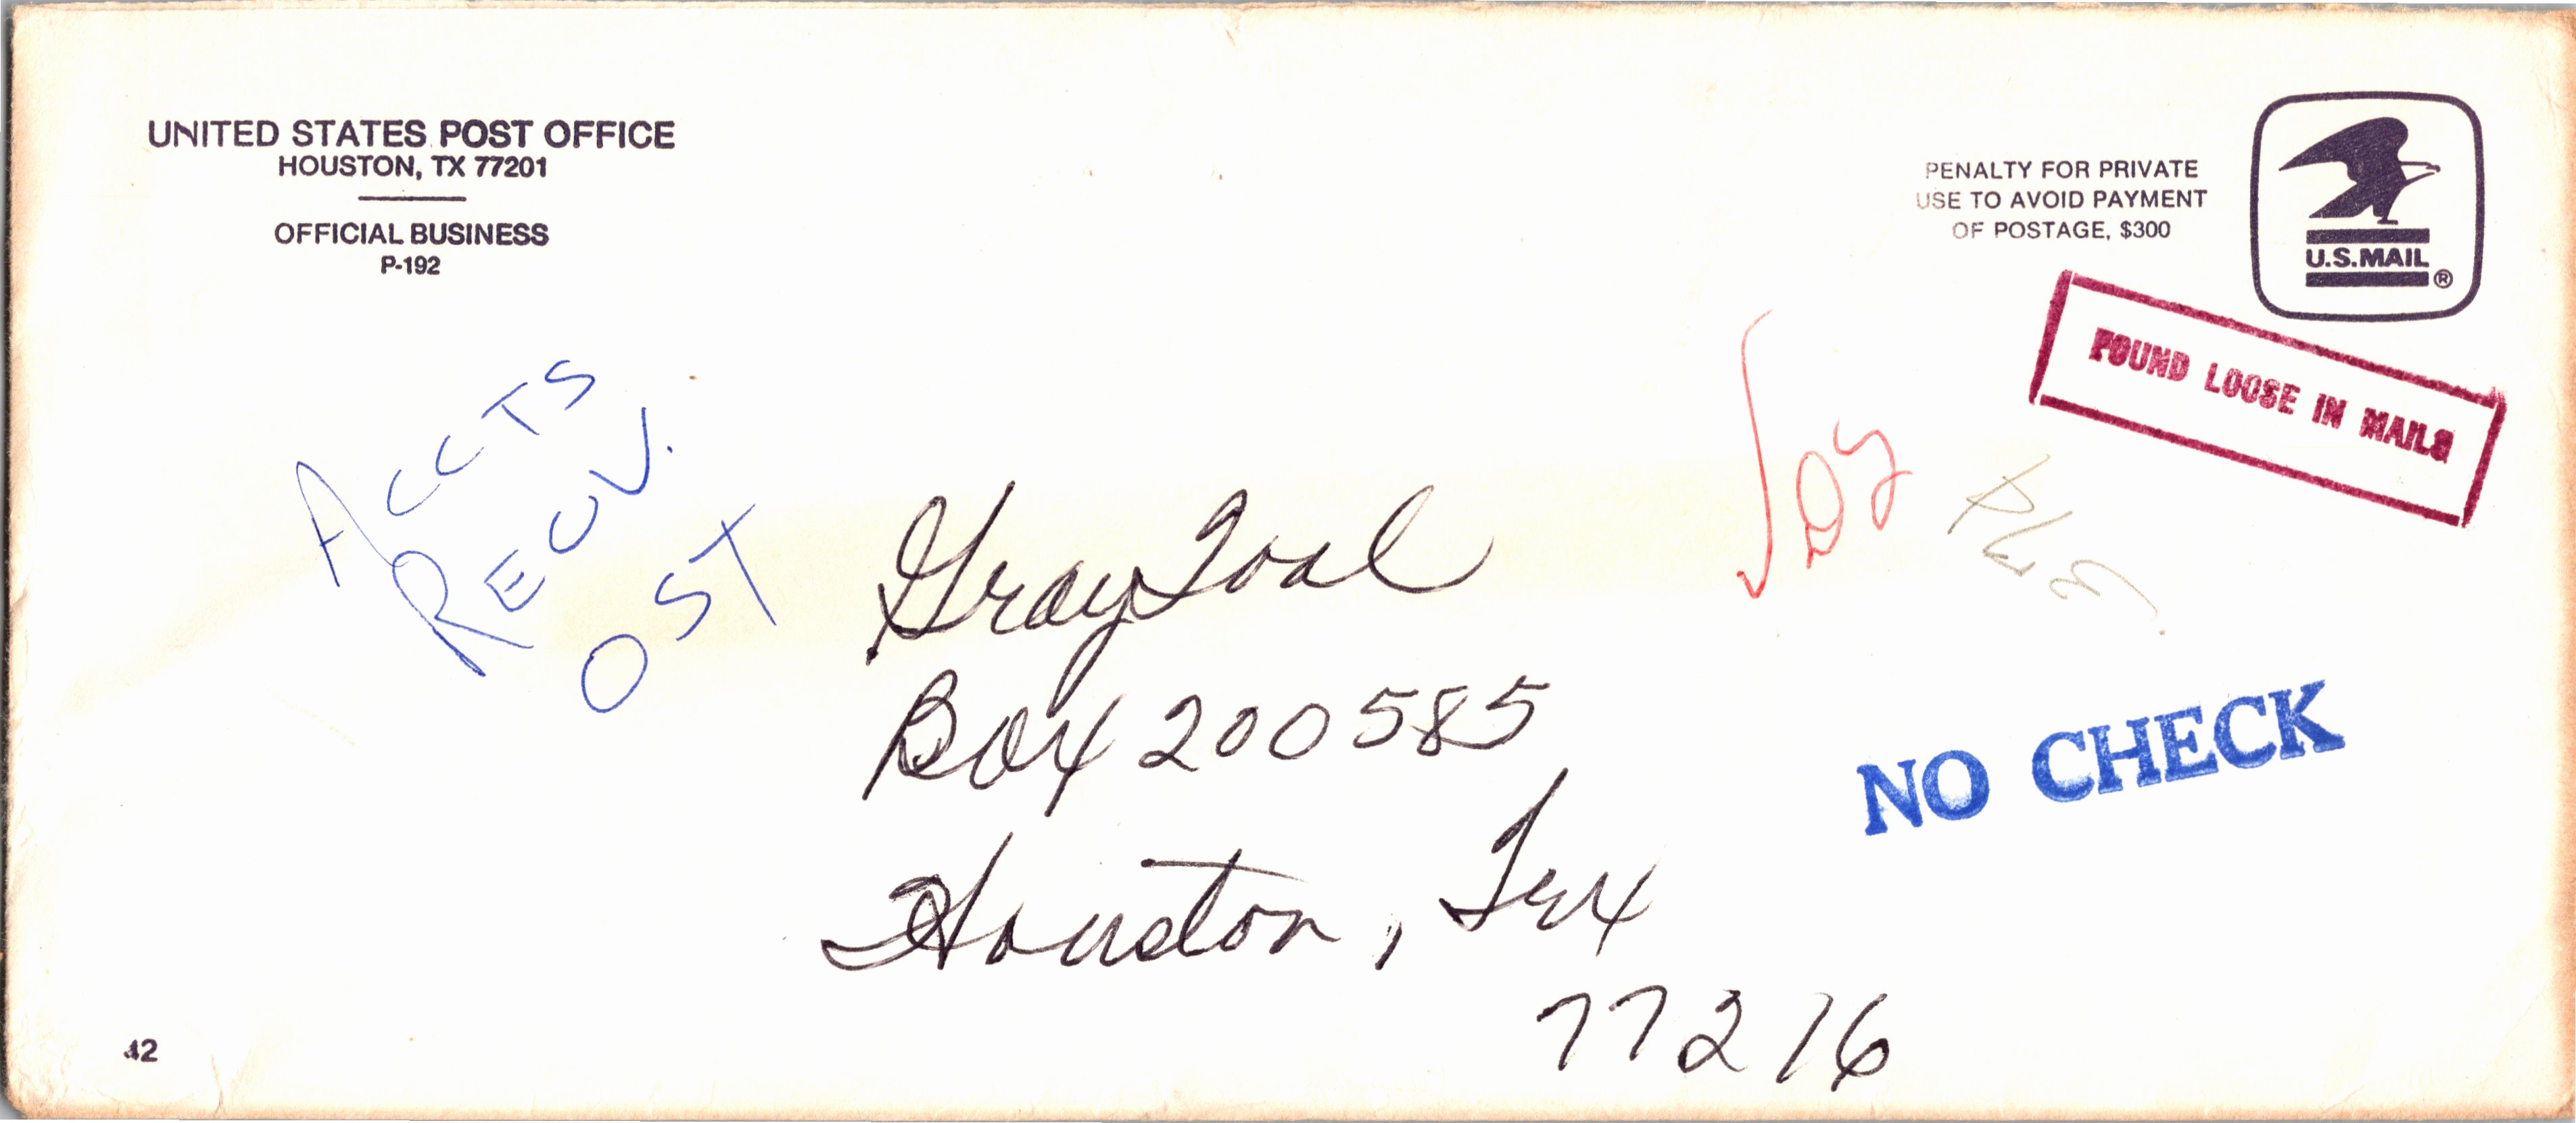 UNITED STATES POST OFFICE
HOUSTON, TX 77201
OFFICIAL BUSINESS
P-192
PENALTY FOR PRIVATE
USE TO AVOID PAYMENT
OF POSTAGE, $300
U.S.MAIL ®
FOUND LOOSE IN MAILS
ACCTS
RECV.
OST
Gray Tool
Box 200585
Houston, Tex
77216
NO CHECK
42